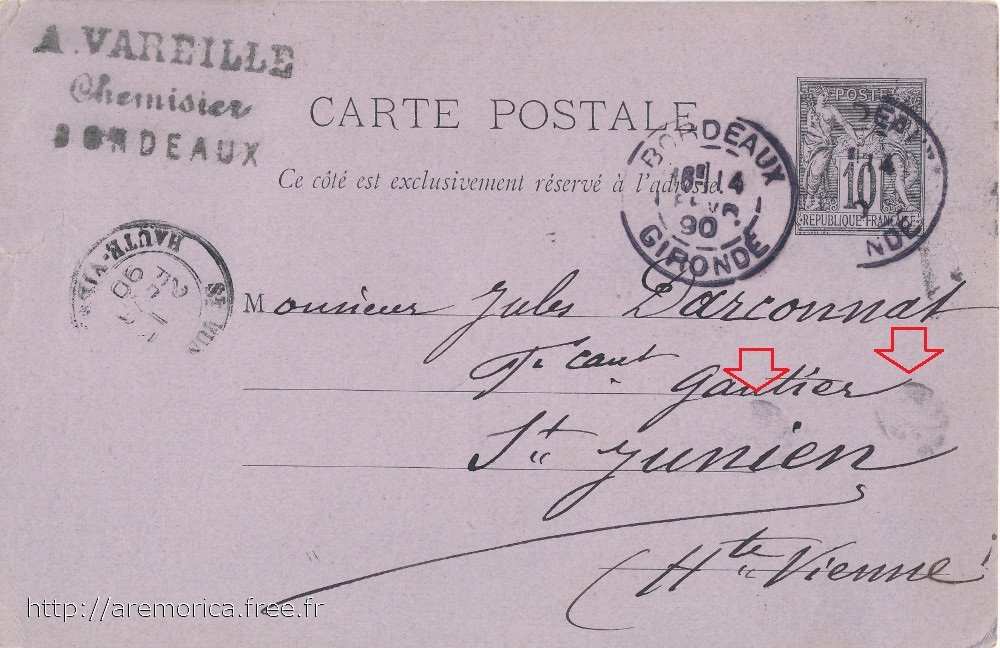 A. VAREILLE
Chemisier
BORDEAUX
CARTE POSTALE
Ce côté est exclusivement réservé à l'adresse.
POSTE
10
REPUBLIQUE FRANCAISE
BORDEAUX
16E 14
FEVR.
90
GIRONDE
DEAUX
14
NDE
HAUTE-VIEN
ST JUN
90
Monsieur Jules Darconnat
Gautier
St Junien
(Hte Vienne
http://aremorica.free.fr